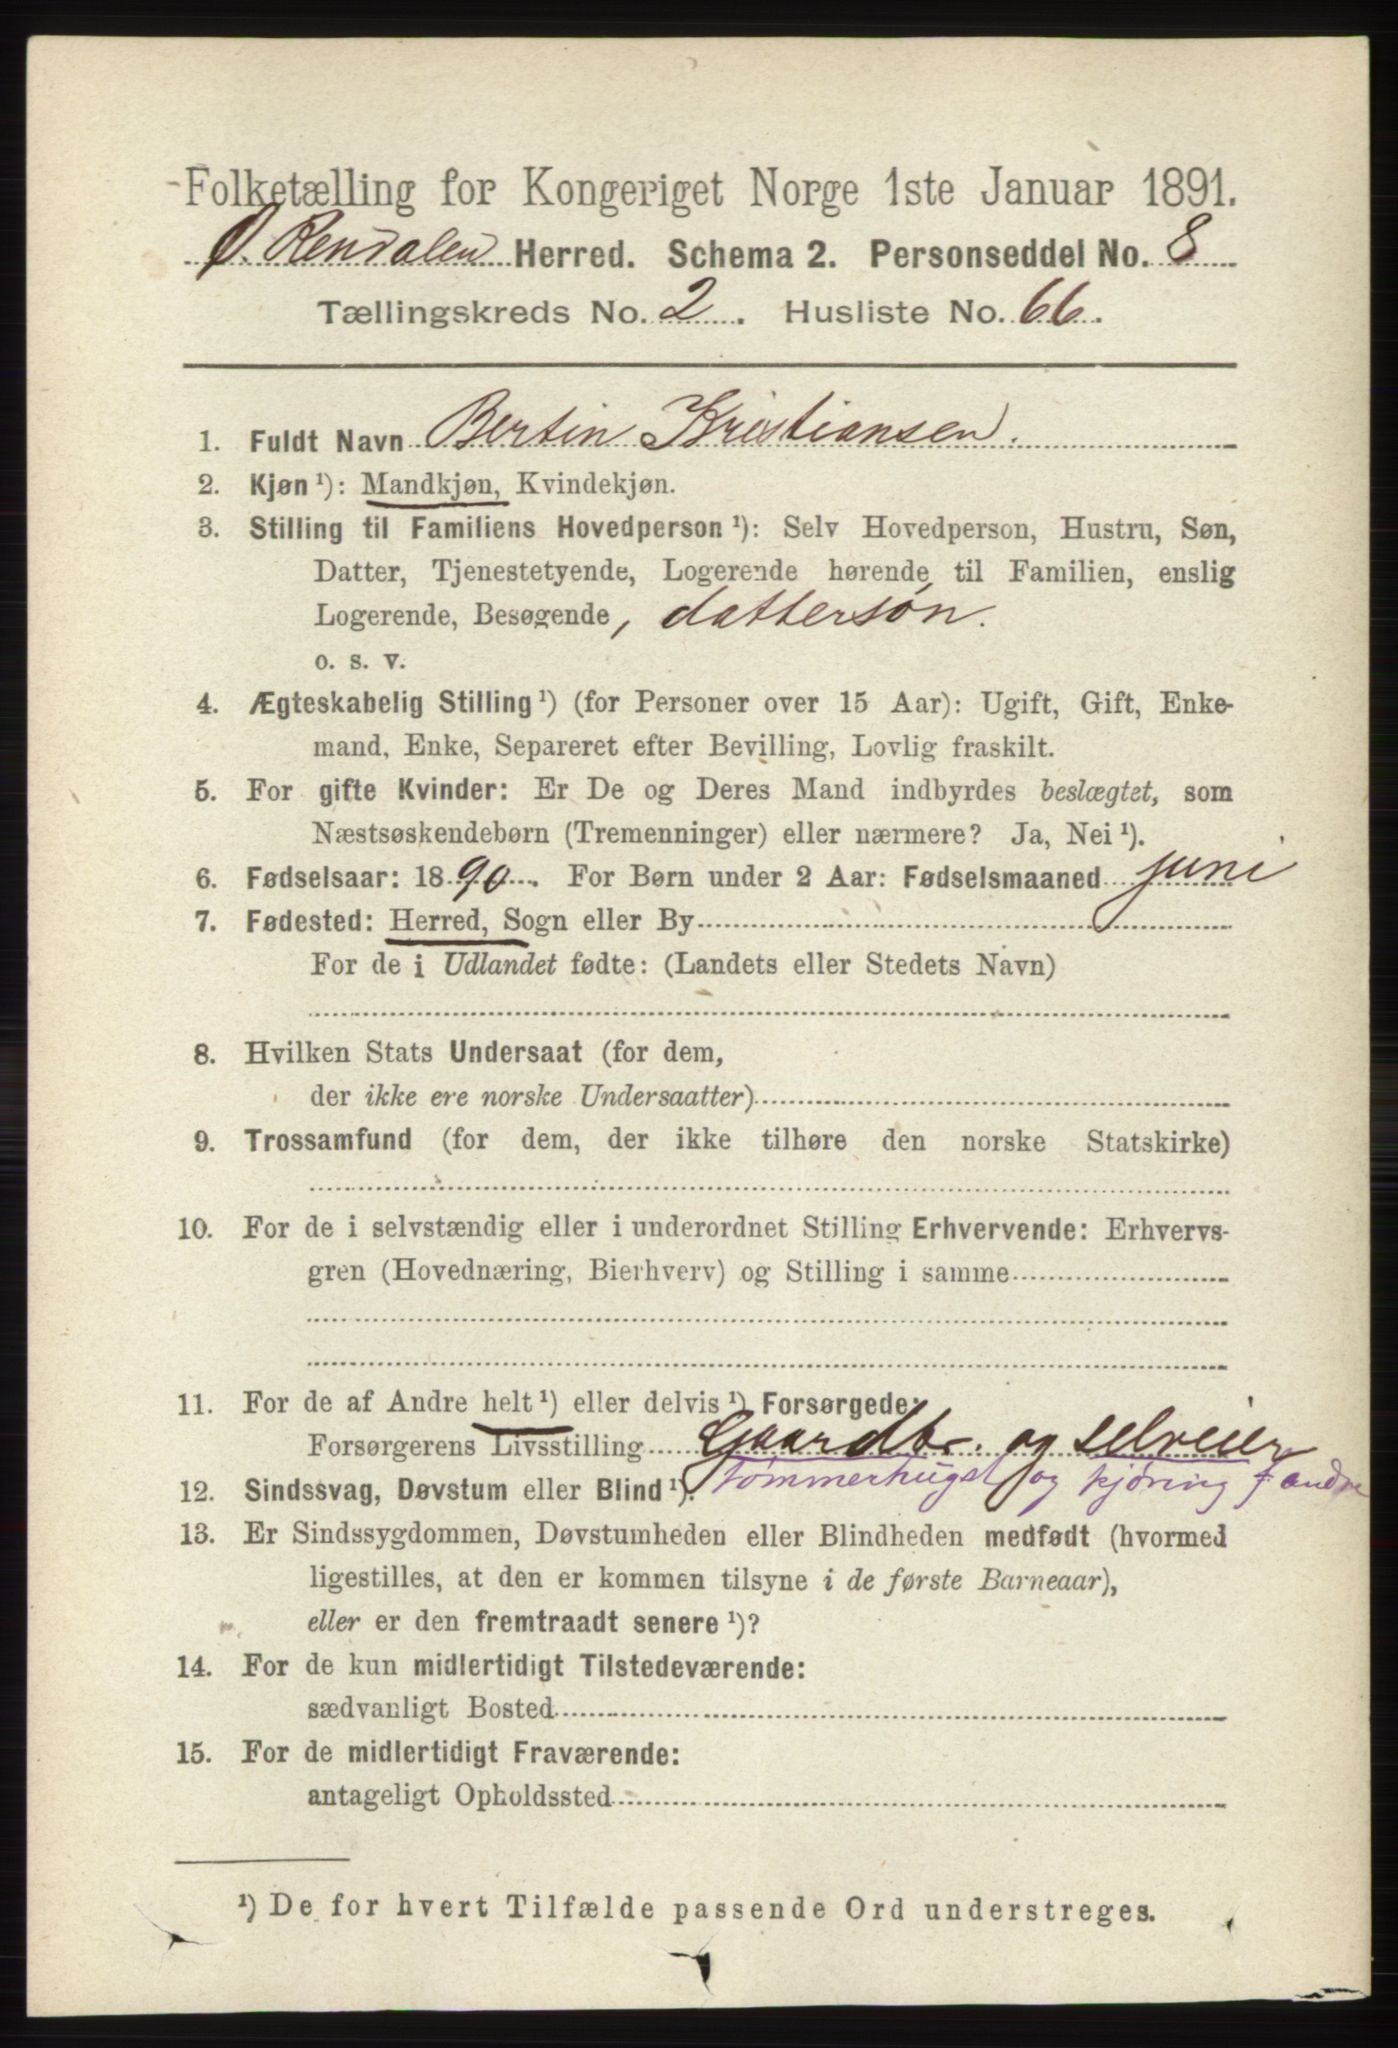 Folketælling for Kongeriget Norge 1ste Januar 1891.
Ø. Rendalen Herred. Schema 2. Personseddel No. 8
Tællingskreds No. 2. Husliste No. 66.
1. Fuldt Navn Bertin Kristiansen.
2. Kjøn ¹): Mandkjøn, Kvindekjøn.
3. Stilling til Familiens Hovedperson ¹): Selv Hovedperson, Hustru, Søn,
Datter, Tjenestetyende, Logerende hørende til Familien, enslig
Logerende, Besøgende, dattersøn.
o. s. v.
4. Ægteskabelig Stilling ¹) (for Personer over 15 Aar): Ugift, Gift, Enke-
mand, Enke, Separeret efter Bevilling, Lovlig fraskilt.
5. For gifte Kvinder: Er De og Deres Mand indbyrdes beslægtet, som
Næstsøskendebørn (Tremenninger) eller nærmere? Ja, Nei ¹).
6. Fødselsaar: 1890. For Børn under 2 Aar: Fødselsmaaned juni
7. Fødested: Herred, Sogn eller By
For de i Udlandet fødte: (Landets eller Stedets Navn)
8. Hvilken Stats Undersaat (for dem,
der ikke ere norske Undersaatter)
9. Trossamfund (for dem, der ikke tilhøre den norske Statskirke)
10. For de i selvstændig eller i underordnet Stilling Erhvervende: Erhvervs-
gren (Hovednæring, Bierhverv) og Stilling i samme
11. For de af Andre helt ¹) eller delvis ¹) Forsørgede:
Forsørgerens Livsstilling Gaardbr. og selveier
tømmerhugst og kjøring f andre
12. Sindssvag, Døvstum eller Blind ¹).
13. Er Sindssygdommen, Døvstumheden eller Blindheden medfødt (hvormed
ligestilles, at den er kommen tilsyne i de første Barneaar),
eller er den fremtraadt senere ¹)?
14. For de kun midlertidigt Tilstedeværende:
sædvanligt Bosted
15. For de midlertidigt Fraværende:
antageligt Opholdssted
¹) De for hvert Tilfælde passende Ord understreges.